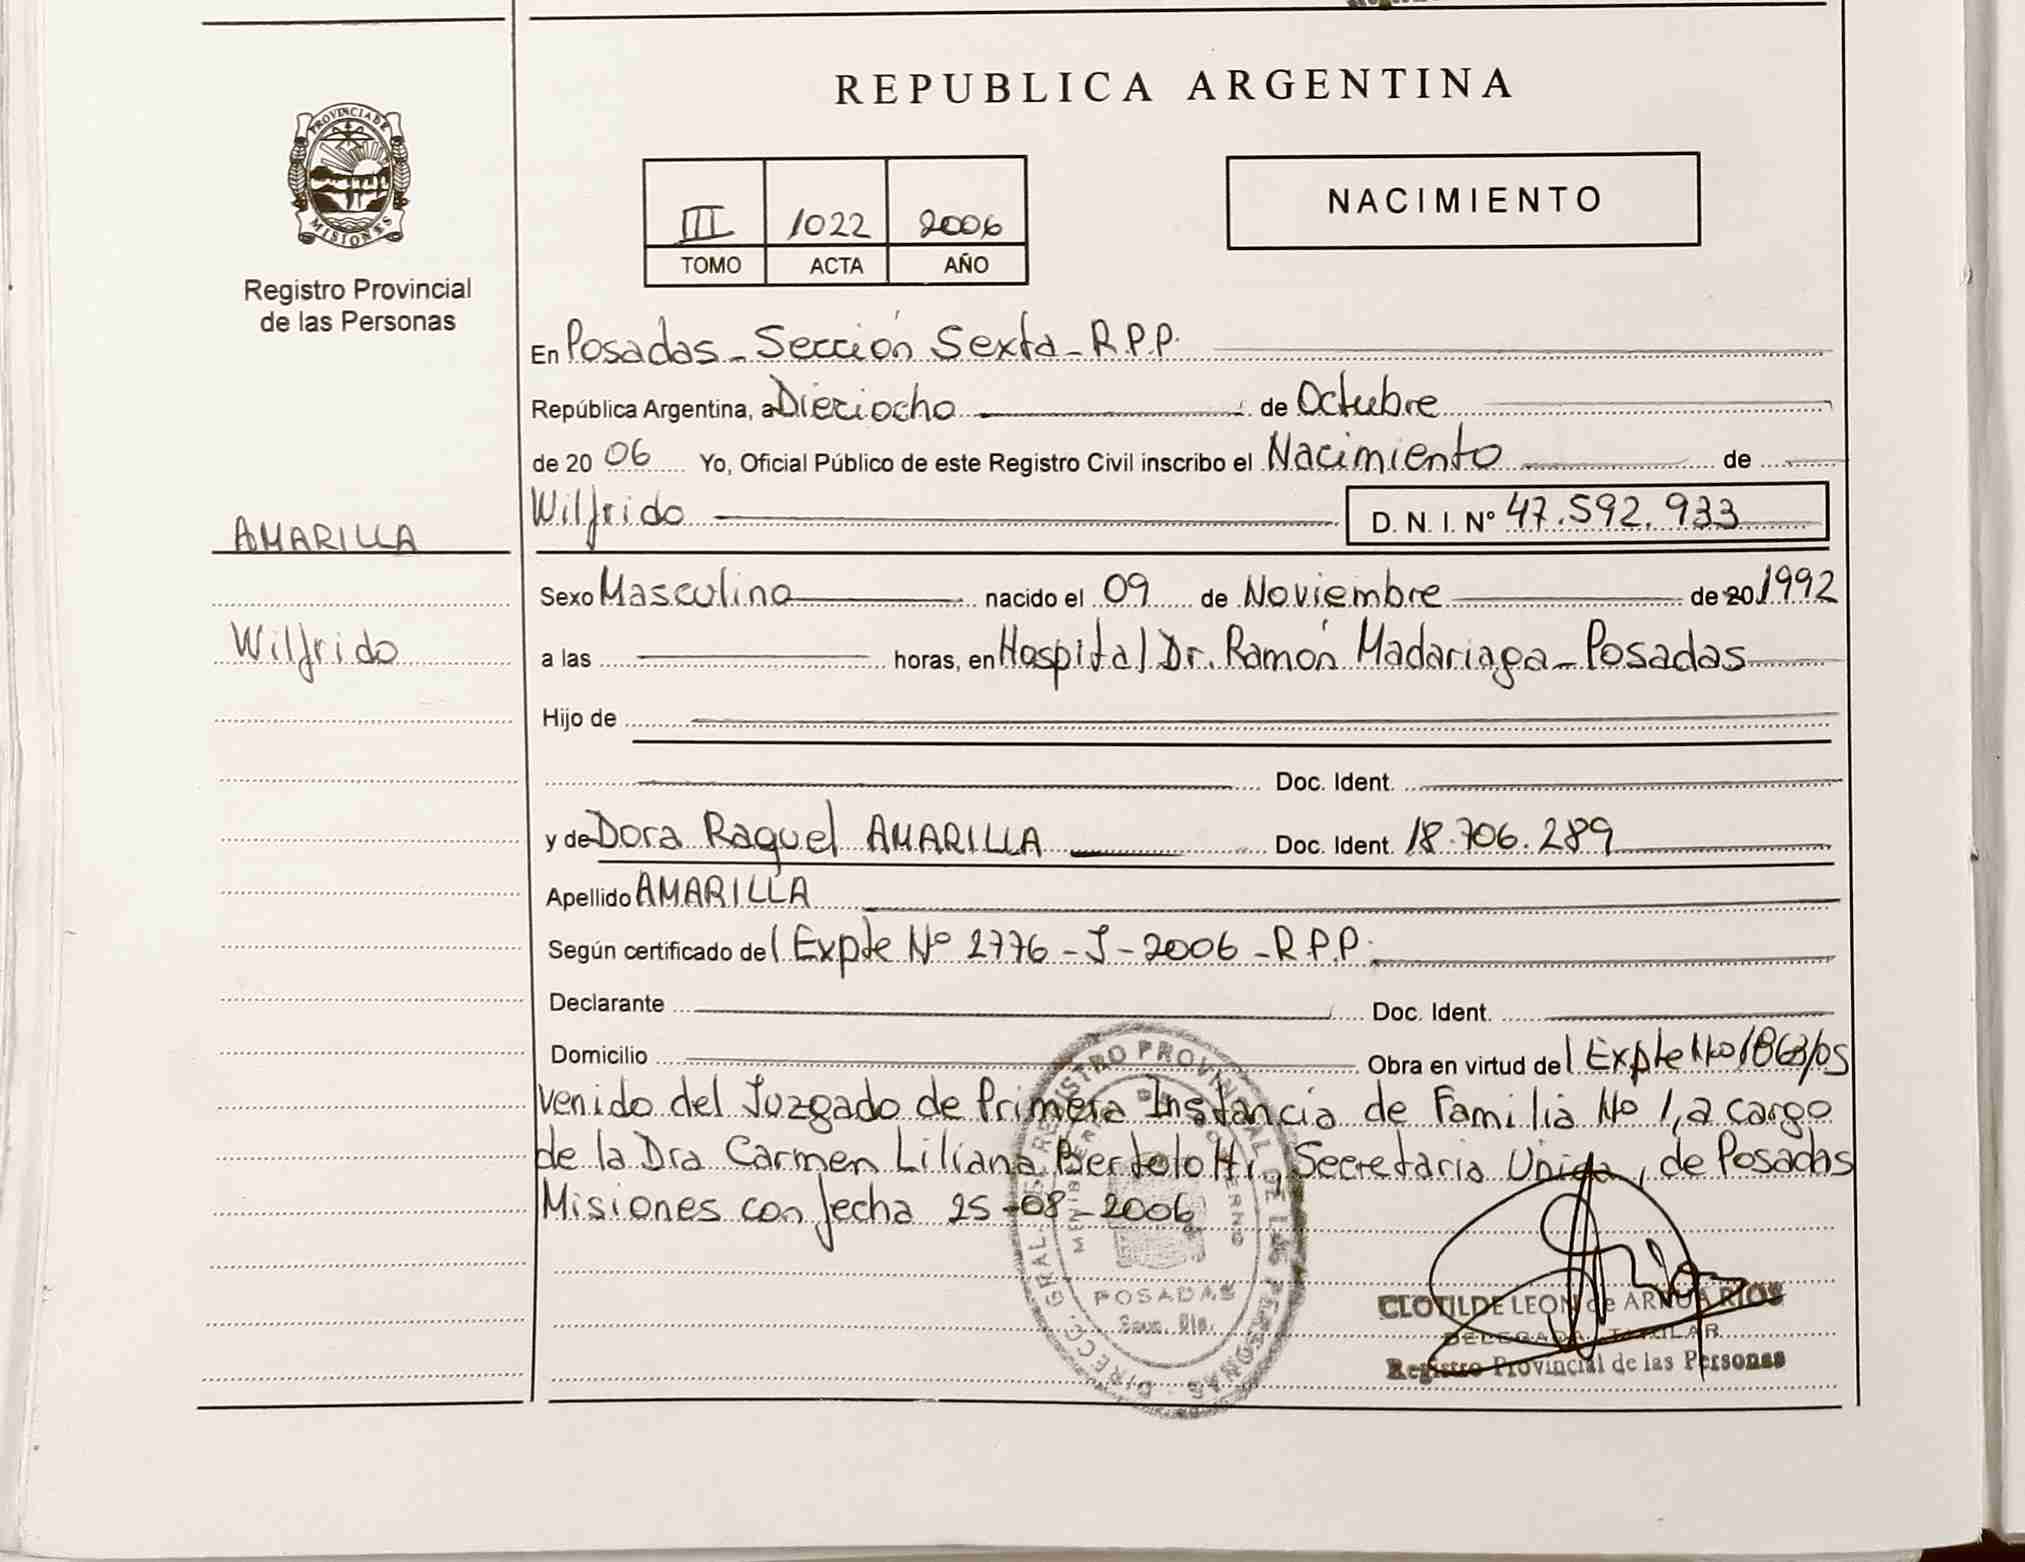 REPUBLICA ARGENTINA
PROVINCIA DE MISIONES
Registro Provincial
de las Personas
III 1022 2006
TOMO ACTA AÑO
NACIMIENTO
En Posadas - Sección Sexta - R.P.P.
República Argentina, a Dieciocho de Octubre
de 20 06 Yo, Oficial Público de este Registro Civil inscribo el Nacimiento de
AMARILLA
Wilfrido
Wilfrido D. N. I. Nº 47.592.933
Sexo Masculino nacido el 09 de Noviembre de 20 1992
a las horas, en Hospital Dr. Ramón Madariaga - Posadas
Hijo de
Doc. Ident.
y de Dora Raquel AMARILLA Doc. Ident. 18.706.289
Apellido AMARILLA
Según certificado del Expte Nº 2776 - J - 2006 - R.P.P.
Declarante Doc. Ident.
Domicilio Obra en virtud del Expte Nº 1863/05
venido del Juzgado de Primera Instancia de Familia Nº 1, a cargo
de la Dra Carmen Liliana Bertolotti, Secretaria Unica, de Posadas
Misiones con fecha 25-08-2006
DIRECC. GRAL. REGISTRO PROVINCIAL DE LAS PERSONAS
POSADAS
CLOTILDE LEON de
DELEGADA TITULAR
Registro Provincial de las Personas